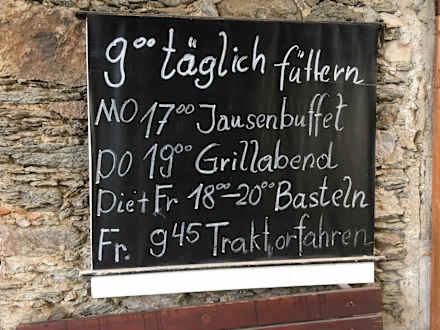 9⁰⁰ täglich füttern
MO 17⁰⁰ Jausenbuffet
DO 19⁰⁰ Grillabend
Die+Fr 18⁰⁰-20⁰⁰ Basteln
Fr. 9⁴⁵ Traktorfahren